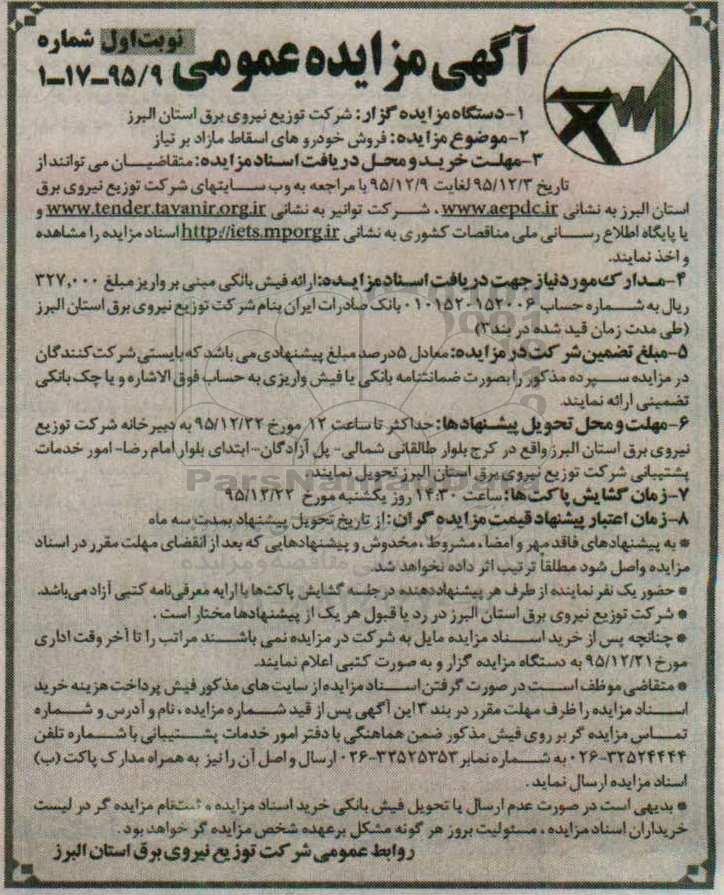 آگهی مزایده عمومی نوبت اول شماره
۱-۱۷-۹۵/۹
۱-دستگاه مزایده گزار: شرکت توزیع نیروی برق استان البرز
۲-موضوع مزایده: فروش خودرو های اسقاط مازاد بر نیاز
۳-مهلت خرید و محل دریافت اسناد مزایده: متقاضیان می توانند از
تاریخ ۹۵/۱۲/۳ لغایت ۹۵/۱۲/۹ با مراجعه به وب سایتهای شرکت توزیع نیروی برق
استان البرز به نشانی www.aepdc.ir ، شرکت توانیر به نشانی www.tender.tavanir.org.ir و
یا پایگاه اطلاع رسانی ملی مناقصات کشوری به نشانی http://iets.mporg.ir اسناد مزایده را مشاهده
و اخذ نمایند.
۴-مدارک مورد نیاز جهت دریافت اسناد مزایده: ارائه فیش بانکی مبنی بر واریز مبلغ ۳۲۷,۰۰۰
ریال به شماره حساب ۰۱۰۱۵۲۰۱۵۲۰۰۶ بانک صادرات ایران بنام شرکت توزیع نیروی برق استان البرز
(طی مدت زمان قید شده در بند ۳)
۵-مبلغ تضمین شرکت در مزایده: معادل ۵ درصد مبلغ پیشنهادی می باشد که بایستی شرکت کنندگان
در مزایده سپرده مذکور را بصورت ضمانتنامه بانکی یا فیش واریزی به حساب فوق الاشاره و یا چک بانکی
تضمینی ارائه نمایند.
۶-مهلت و محل تحویل پیشنهادها: حداکثر تا ساعت ۱۲ مورخ ۹۵/۱۲/۲۲ به دبیرخانه شرکت توزیع
نیروی برق استان البرز واقع در کرج بلوار طالقانی شمالی- پل آزادگان- ابتدای بلوار امام رضا- امور خدمات
پشتیبانی شرکت توزیع نیروی برق استان البرز تحویل نمایند.
ParsNamadData
۷-زمان گشایش پاکت ها: ساعت ۱۴:۳۰ روز یکشنبه مورخ ۹۵/۱۲/۲۲
۸-زمان اعتبار پیشنهاد قیمت مزایده گران: از تاریخ تحویل پیشنهاد بمدت سه ماه
* به پیشنهادهای فاقد مهر و امضا، مشروط ، مخدوش و پیشنهادهایی که بعد از انقضای مهلت مقرر در اسناد
مزایده واصل شود مطلقاً ترتیب اثر داده نخواهد شد.
* حضور یک نفر نماینده از طرف هر پیشنهاددهنده در جلسه گشایش پاکت‌ها با ارایه معرفی‌نامه کتبی آزاد می‌باشد.
* شرکت توزیع نیروی برق استان البرز در رد یا قبول هر یک از پیشنهادها مختار است .
* چنانچه پس از خرید اسناد مزایده مایل به شرکت در مزایده نمی باشند مراتب را تا آخر وقت اداری
مورخ ۹۵/۱۲/۲۱ به دستگاه مزایده گزار و به صورت کتبی اعلام نمایند.
* متقاضی موظف است در صورت گرفتن اسناد مزایده از سایت های مذکور فیش پرداخت هزینه خرید
اسناد مزایده را ظرف مهلت مقرر در بند ۳ این آگهی پس از قید شماره مزایده ، نام و آدرس و شماره
تماس مزایده گر بر روی فیش مذکور ضمن هماهنگی با دفتر امور خدمات پشتیبانی با شماره تلفن
۰۲۶-۳۲۵۲۴۴۴۴ به شماره نمابر ۰۲۶-۳۲۵۲۵۳۵۳ ارسال و اصل آن را نیز به همراه مدارک پاکت (ب)
اسناد مزایده ارسال نماید .
* بدیهی است در صورت عدم ارسال یا تحویل فیش بانکی خرید اسناد مزایده و ثبت‌نام مزایده گر در لیست
خریداران اسناد مزایده ، مسئولیت بروز هر گونه مشکل برعهده شخص مزایده گر خواهد بود .
روابط عمومی شرکت توزیع نیروی برق استان البرز